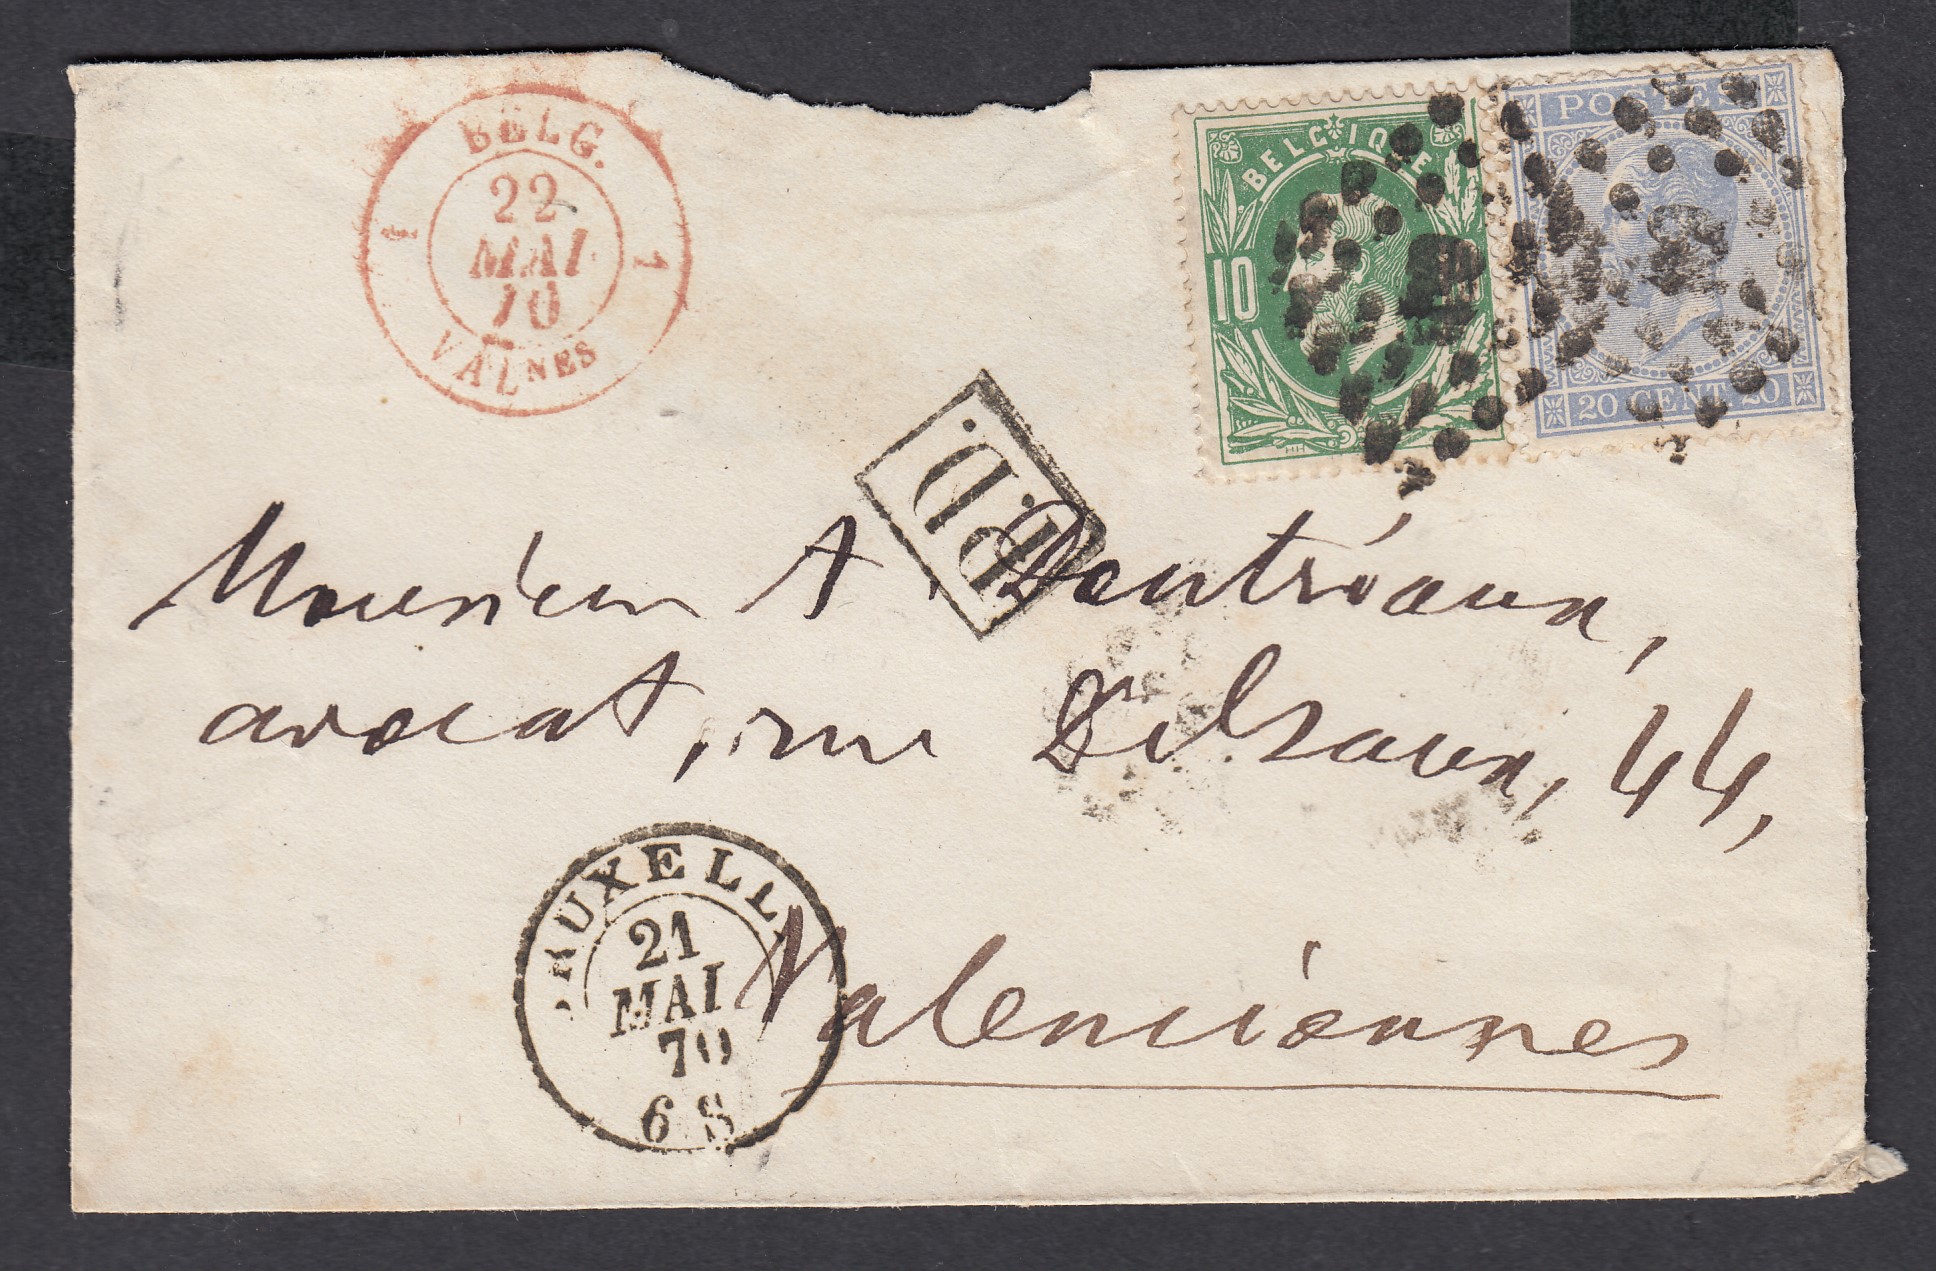 BELG.
22
MAI
70
VALNES
1 1
BELGIQUE
10
POSTES
20 CENT. 20
P.D.
Monsieur A. Dautréaux,
avocat, rue Delsaux, 44,
Valenciennes
BRUXELLES
21
MAI
70
6 S